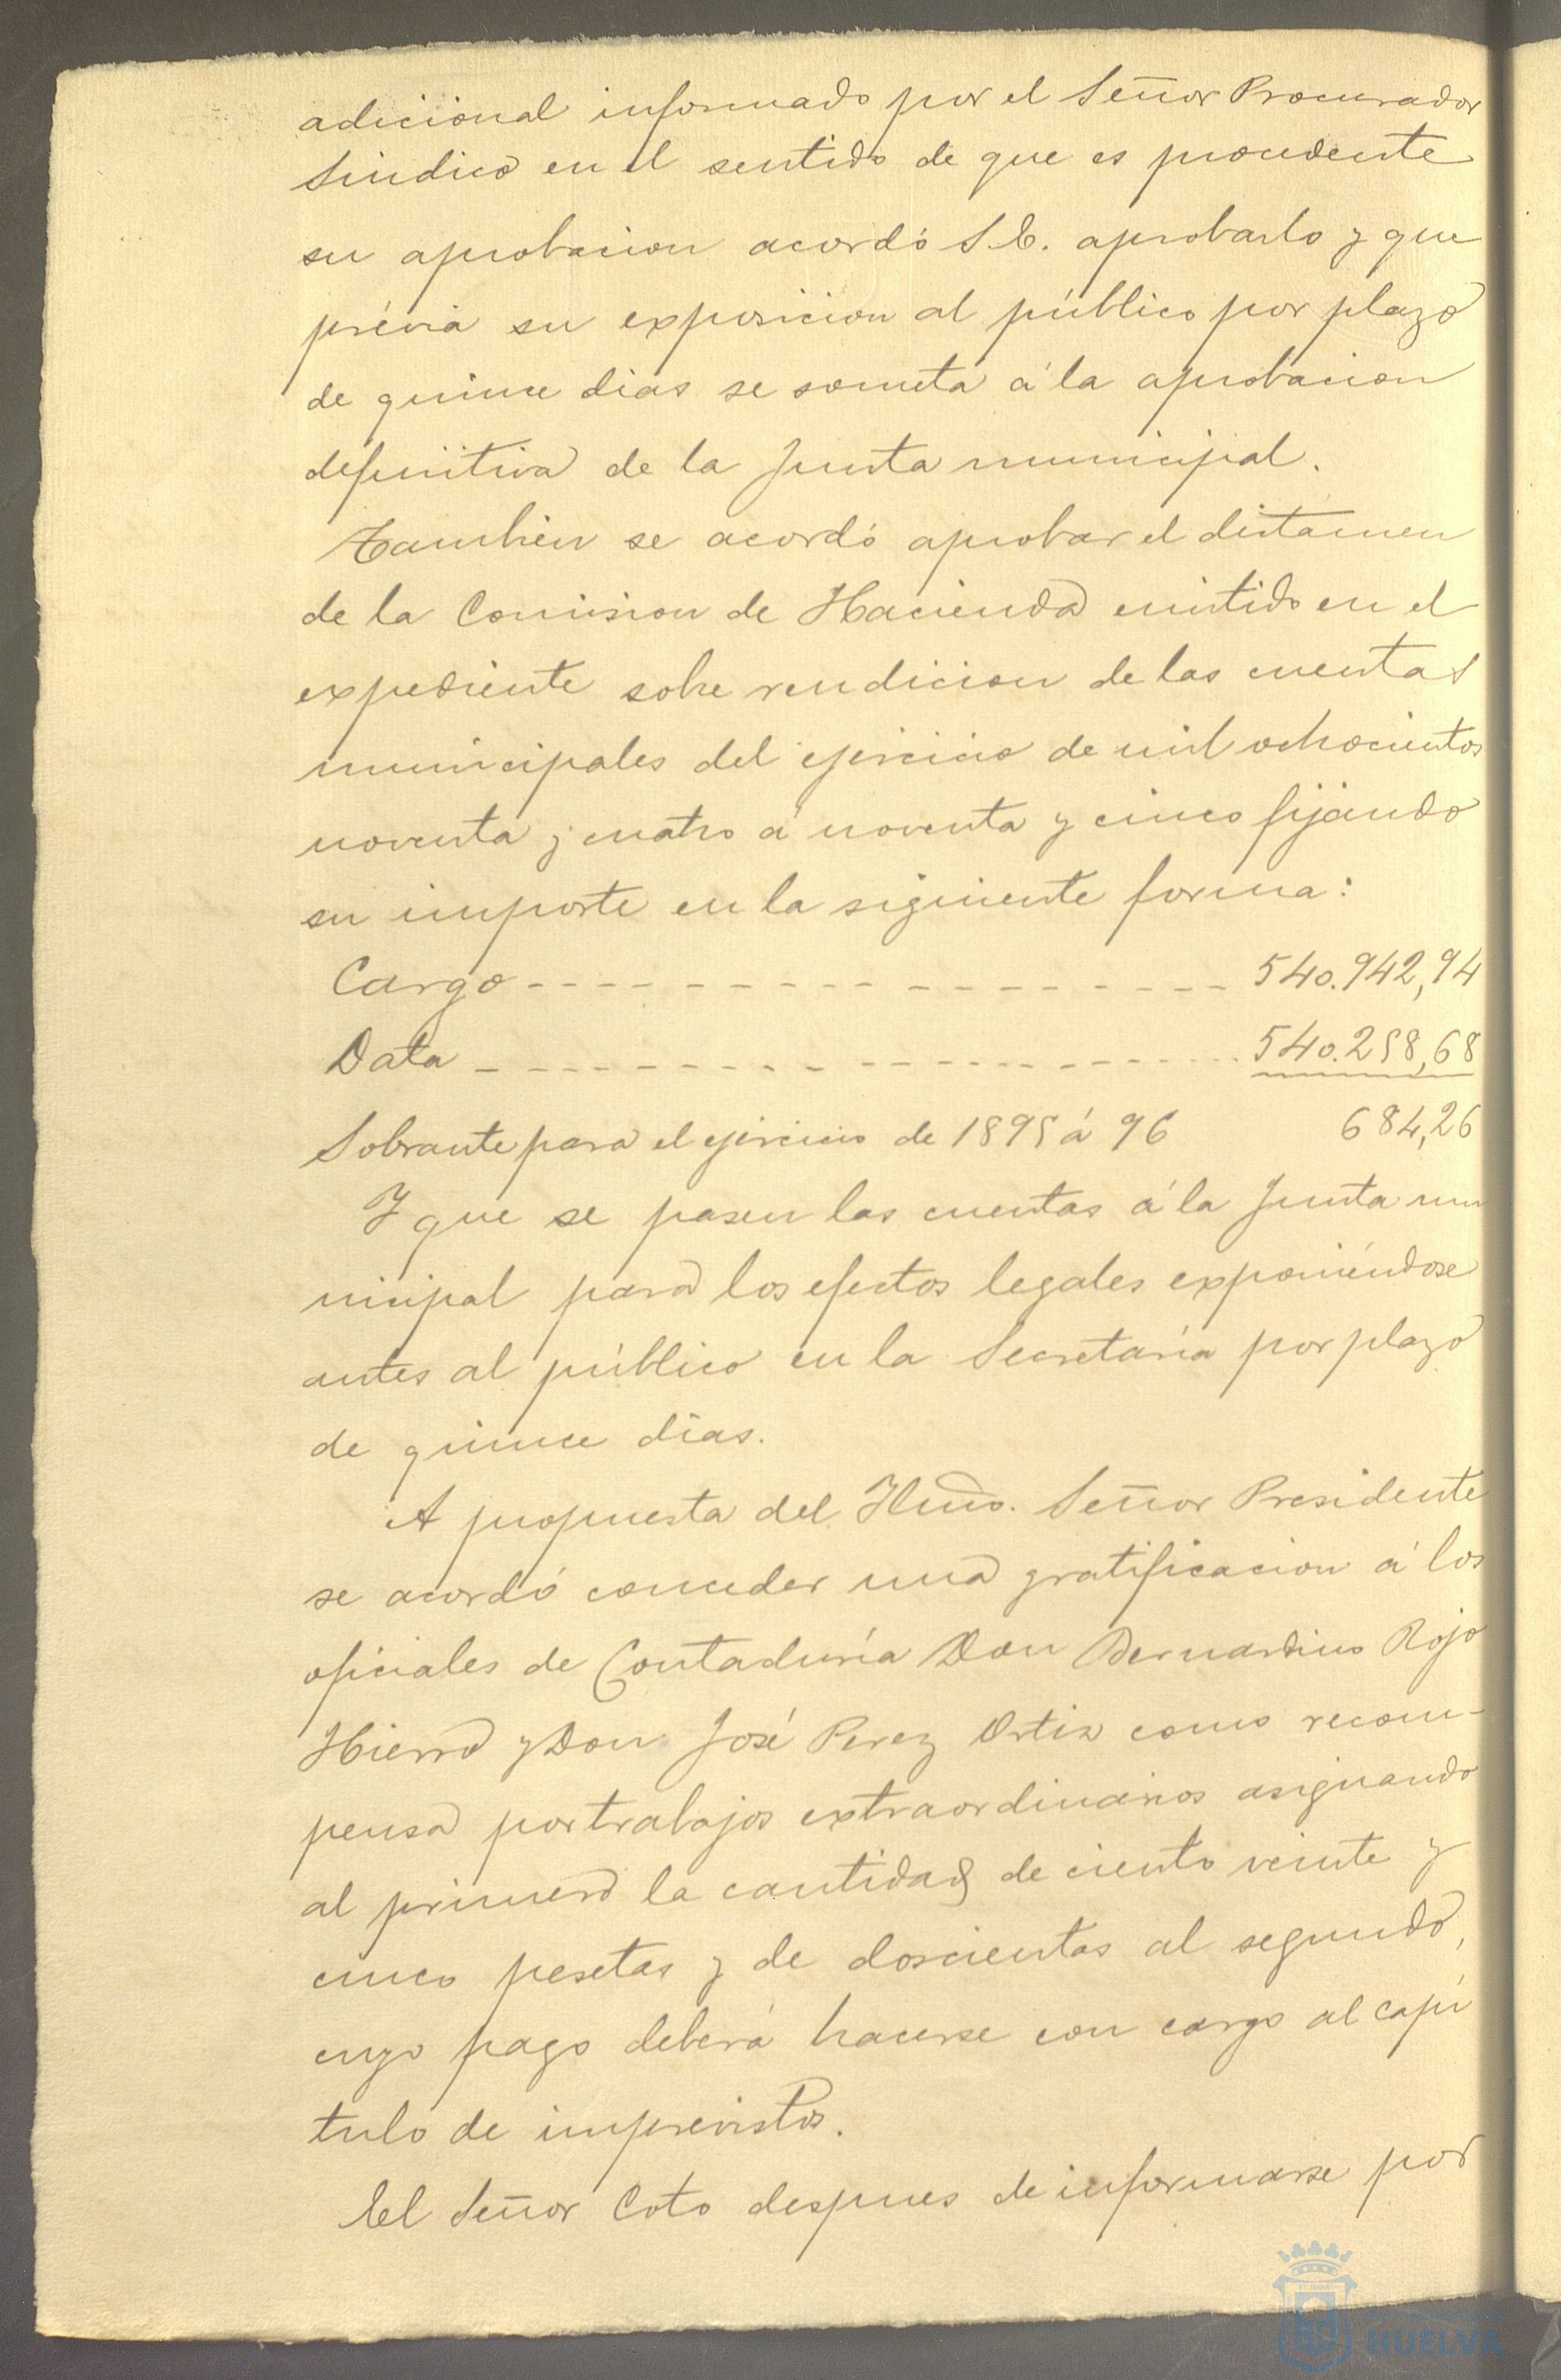 adicional informado por el Señor Procurador
Sindico en el sentido de que es procedente
su aprobacion acordó S.E. aprobarlo y que
prévia su exposicion al público por plazo
de quince dias se someta á la aprobacion
definitiva de la Junta municipal.
Tambien se acordó aprobar el dictámen
de la Comision de Hacienda emitido en el
expediente sobre rendicion de las cuentas
municipales del ejercicio de mil ochocientos
noventa y cuatro á noventa y cinco fijando
su importe en la siguiente forma:
Cargo - - - - - - - - - - - - - - - - - - 540.942,94
Data - - - - - - - - - - - - - - - - - - 540.258,68
Sobrante para el ejercicio de 1895 á 96 684,26
Y que se pasen las cuentas á la Junta mu
nicipal para los efectos legales exponiéndose
antes al público en la Secretaría por plazo
de quince dias.
A propuesta del Iltmo. Señor Presidente
se acordó conceder una gratificacion á los
oficiales de Contaduría Don Bernardino Rojo
Hierro y Don José Perez Ortiz como recom-
pensa por trabajos extraordinarios asignando
al primero la cantidad de ciento veinte y
cinco pesetas y de doscientas al segundo,
cuyo pago deberá hacerse con cargo al capí
tulo de imprevistos.
El Señor Coto despues de informarse por
HUELVA